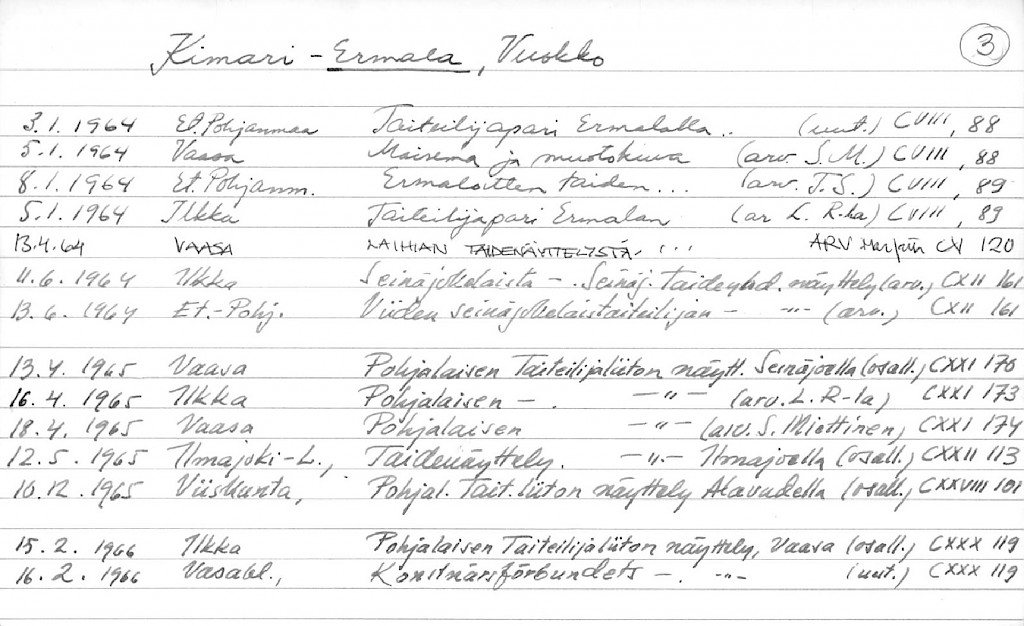 Kimari - Ermala, Vuokko 3
3.1.1964 Et.Pohjanmaa Taiteilijapari Ermalalla .. (uut.) CVIII, 88
5.1.1964 Vaasa Maisema ja muotokuva (arv. S.M.) CVIII, 88
8.1.1964 Et.Pohjanm. Ermaloitten taiden... (arv. T.S.) CVIII, 89
5.1.1964 Ilkka Taiteilijapari Ermalan (ar L. R-la) CVIII, 89
13.4.64 VAASA LAIHIAN TAIDENÄYTTELYSTÄ ... ARV CX 120
11.6.1964 Ilkka Seinäjokelaista - . Seinäj. Taideyhd. näyttely (arv.) CXII 161
13.6.1964 Et.-Pohj. Viiden seinäjokelaistaiteilijan - -"- (arv.) CXII 161
13.4.1965 Vaasa Pohjalaisen Taiteilijaliiton näytt. Seinäjoella (osall.) CXXI 170
16.4.1965 Ilkka Pohjalaisen - . -"- (arv. L. R-la) CXXI 173
18.4.1965 Vaasa Pohjalaisen -"- (arv. S. Miettinen) CXXI 174
12.5.1965 Ilmajoki-L., Taidenäyttely. -"- Ilmajoella (osall.) CXXII 113
10.12.1965 Viiskunta, Pohjal. Tait.liiton näyttely Alavudella (osall.) CXXVIII 101
15.2.1966 Ilkka Pohjalaisen Taiteilijaliiton näyttely, Vaasa (osall.) CXXX 119
16.2.1966 Vasabl., Konstnärsförbundets - . -"- (uut.) CXXX 119